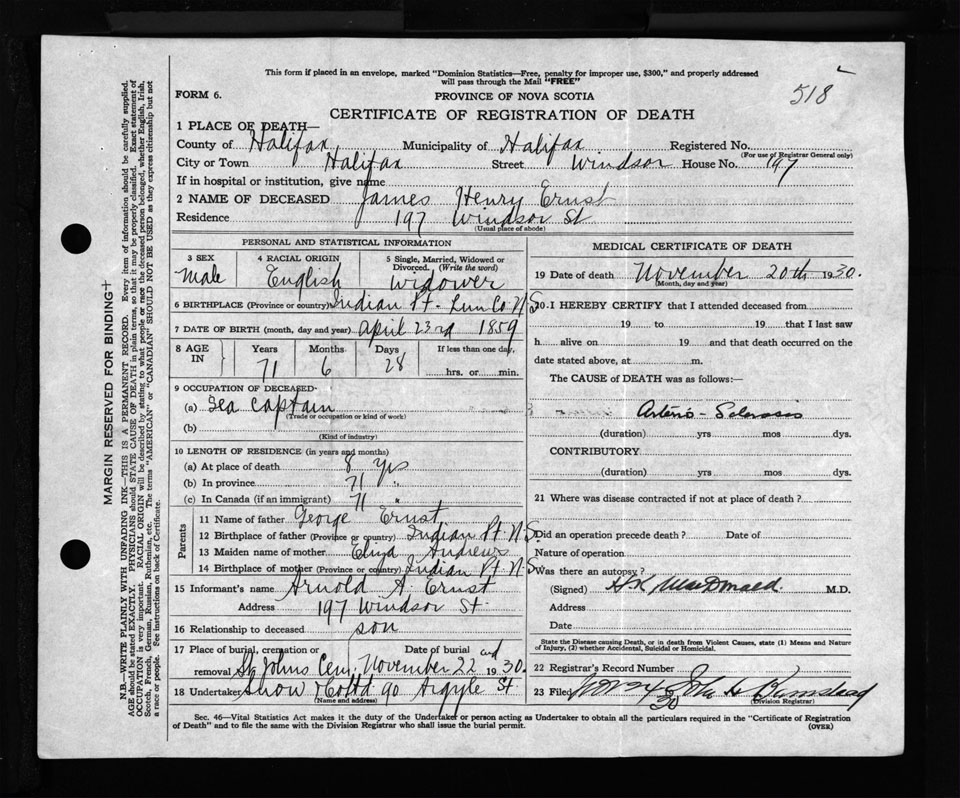 This form if placed in an envelope, marked "Dominion Statistics—Free, penalty for improper use, $300," and properly addressed
will pass through the Mail "FREE"
518
FORM 6.
PROVINCE OF NOVA SCOTIA
CERTIFICATE OF REGISTRATION OF DEATH
1 PLACE OF DEATH—
County of Halifax Municipality of Halifax Registered No.
(For use of Registrar General only)
City or Town Halifax Street Windsor House No. 197
If in hospital or institution, give name
2 NAME OF DECEASED James Henry Ernst
Residence 197 Windsor St
(Usual place of abode)
PERSONAL AND STATISTICAL INFORMATION
3 SEX 4 RACIAL ORIGIN 5 Single, Married, Widowed or Divorced. (Write the word)
Male English Widower
6 BIRTHPLACE (Province or country) Indian Pt. Lun Co N.S.
7 DATE OF BIRTH (month, day and year) April 23rd 1859
8 AGE IN Years Months Days If less than one day,
71 6 28 hrs. or min.
9 OCCUPATION OF DECEASED
(a) Sea Captain
(Trade or occupation or kind of work)
(b)
(Kind of industry)
10 LENGTH OF RESIDENCE (in years and months)
(a) At place of death 8 yrs
(b) In province 71 "
(c) In Canada (if an immigrant) 71 "
Parents
11 Name of father George Ernst
12 Birthplace of father (Province or country) Indian Pt. N.S.
13 Maiden name of mother Eliza Andrews
14 Birthplace of mother (Province or country) Indian Pt. N.S.
15 Informant's name Arnold A Ernst
Address 197 Windsor St.
16 Relationship to deceased son
17 Place of burial, cremation or removal Date of burial
St Johns Cem. November 22 nd 1930.
18 Undertaker Snow & Co Ltd 90 Argyle St
(Name and address)
MEDICAL CERTIFICATE OF DEATH
19 Date of death November 20th 1930.
(Month, day and year)
20. I HEREBY CERTIFY that I attended deceased from
19 to 19 that I last saw
h alive on 19 and that death occurred on the
date stated above, at m.
The CAUSE of DEATH was as follows:—
Arterio-Sclerosis
(duration) yrs mos dys.
CONTRIBUTORY
(duration) yrs mos dys.
21 Where was disease contracted if not at place of death?
Did an operation precede death? Date of
Nature of operation
Was there an autopsy?
(Signed) MacDonald. M.D.
Address
Date
State the Disease causing Death, or in death from Violent Causes, state (1) Means and Nature
of Injury, (2) whether Accidental, Suicidal or Homicidal.
22 Registrar's Record Number
23 Filed Nov 24 30 John H Barnstead
(Division Registrar)
Sec. 46—Vital Statistics Act makes it the duty of the Undertaker or person acting as Undertaker to obtain all the particulars required in the "Certificate of Registration
of Death" and to file the same with the Division Registrar who shall issue the burial permit.
(OVER)
MARGIN RESERVED FOR BINDING
N.B.—WRITE PLAINLY WITH UNFADING INK—THIS IS A PERMANENT RECORD. Every item of information should be carefully supplied.
AGE should be stated EXACTLY. PHYSICIANS should STATE CAUSE OF DEATH in plain terms, so that it may be properly classified. Exact statement of
OCCUPATION is very important. RACIAL ORIGIN will be described by stating to what people or race the deceased person belonged, whether English, Irish,
Scotch, French, German, Russian, Ruthenian, etc. The terms "AMERICAN" or "CANADIAN" SHOULD NOT BE USED as they express citizenship but not
a race or people. See instructions on back of Certificate.